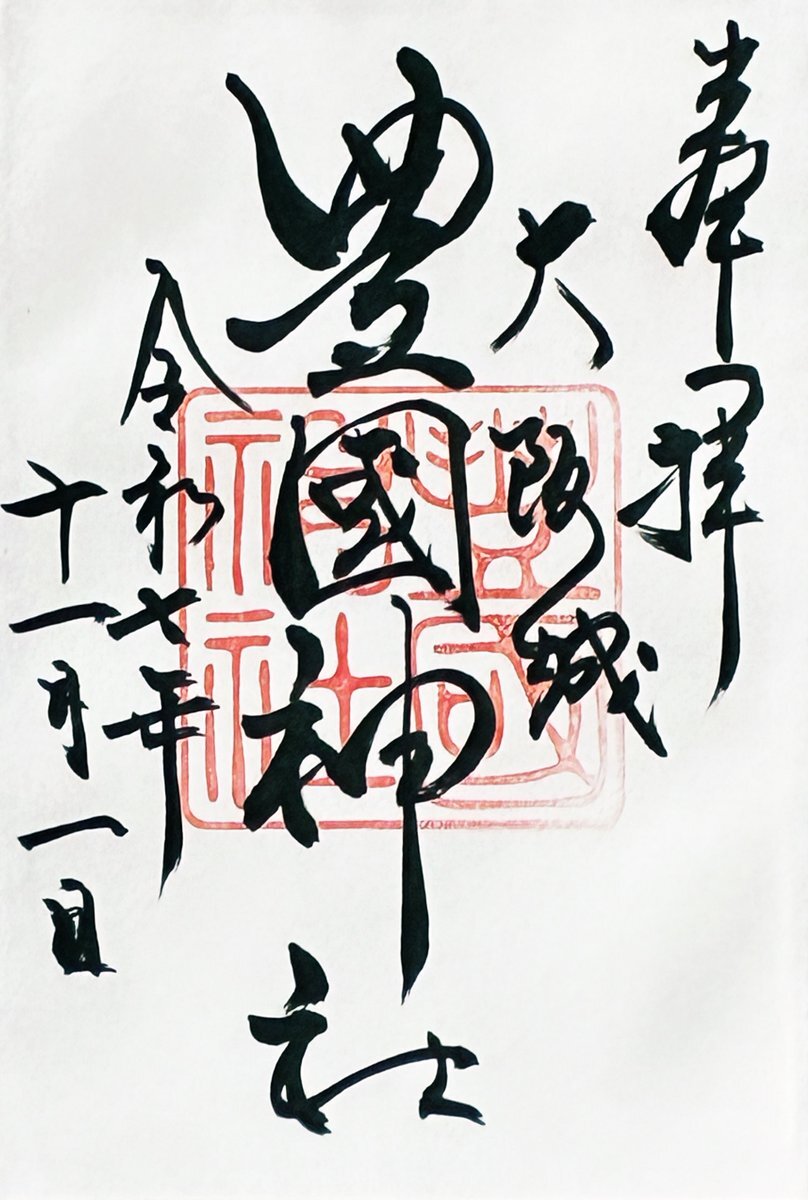 奉拝
大阪城
豊國神社
令和七年
十一月一日
豊國
神社